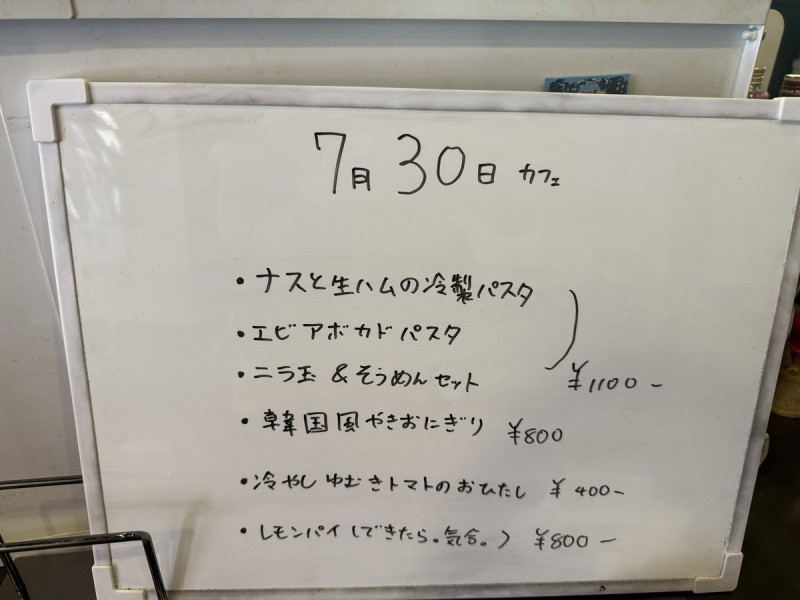 7月30日 カフェ
・ナスと生ハムの冷製パスタ
・エビアボカドパスタ
・ニラ玉&そうめんセット ¥1100-
・韓国風やきおにぎり ¥800
・冷やしゆむきトマトのおひたし ¥400-
・レモンパイ(できたら。気合。) ¥800-